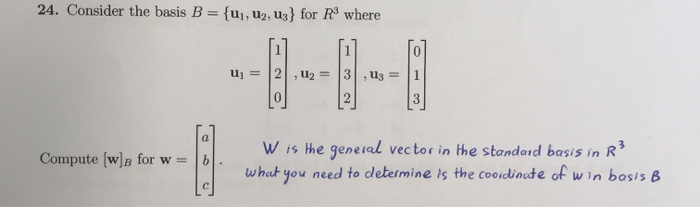 24. Consider the basis B = {u₁, u₂, u₃} for R³ where
u₁ = [1 2 0], u₂ = [1 3 2], u₃ = [0 1 3]
Compute [w]_B for w = [a b c].
W is the general vector in the standard basis in R³
what you need to determine is the coordinate of w in basis B